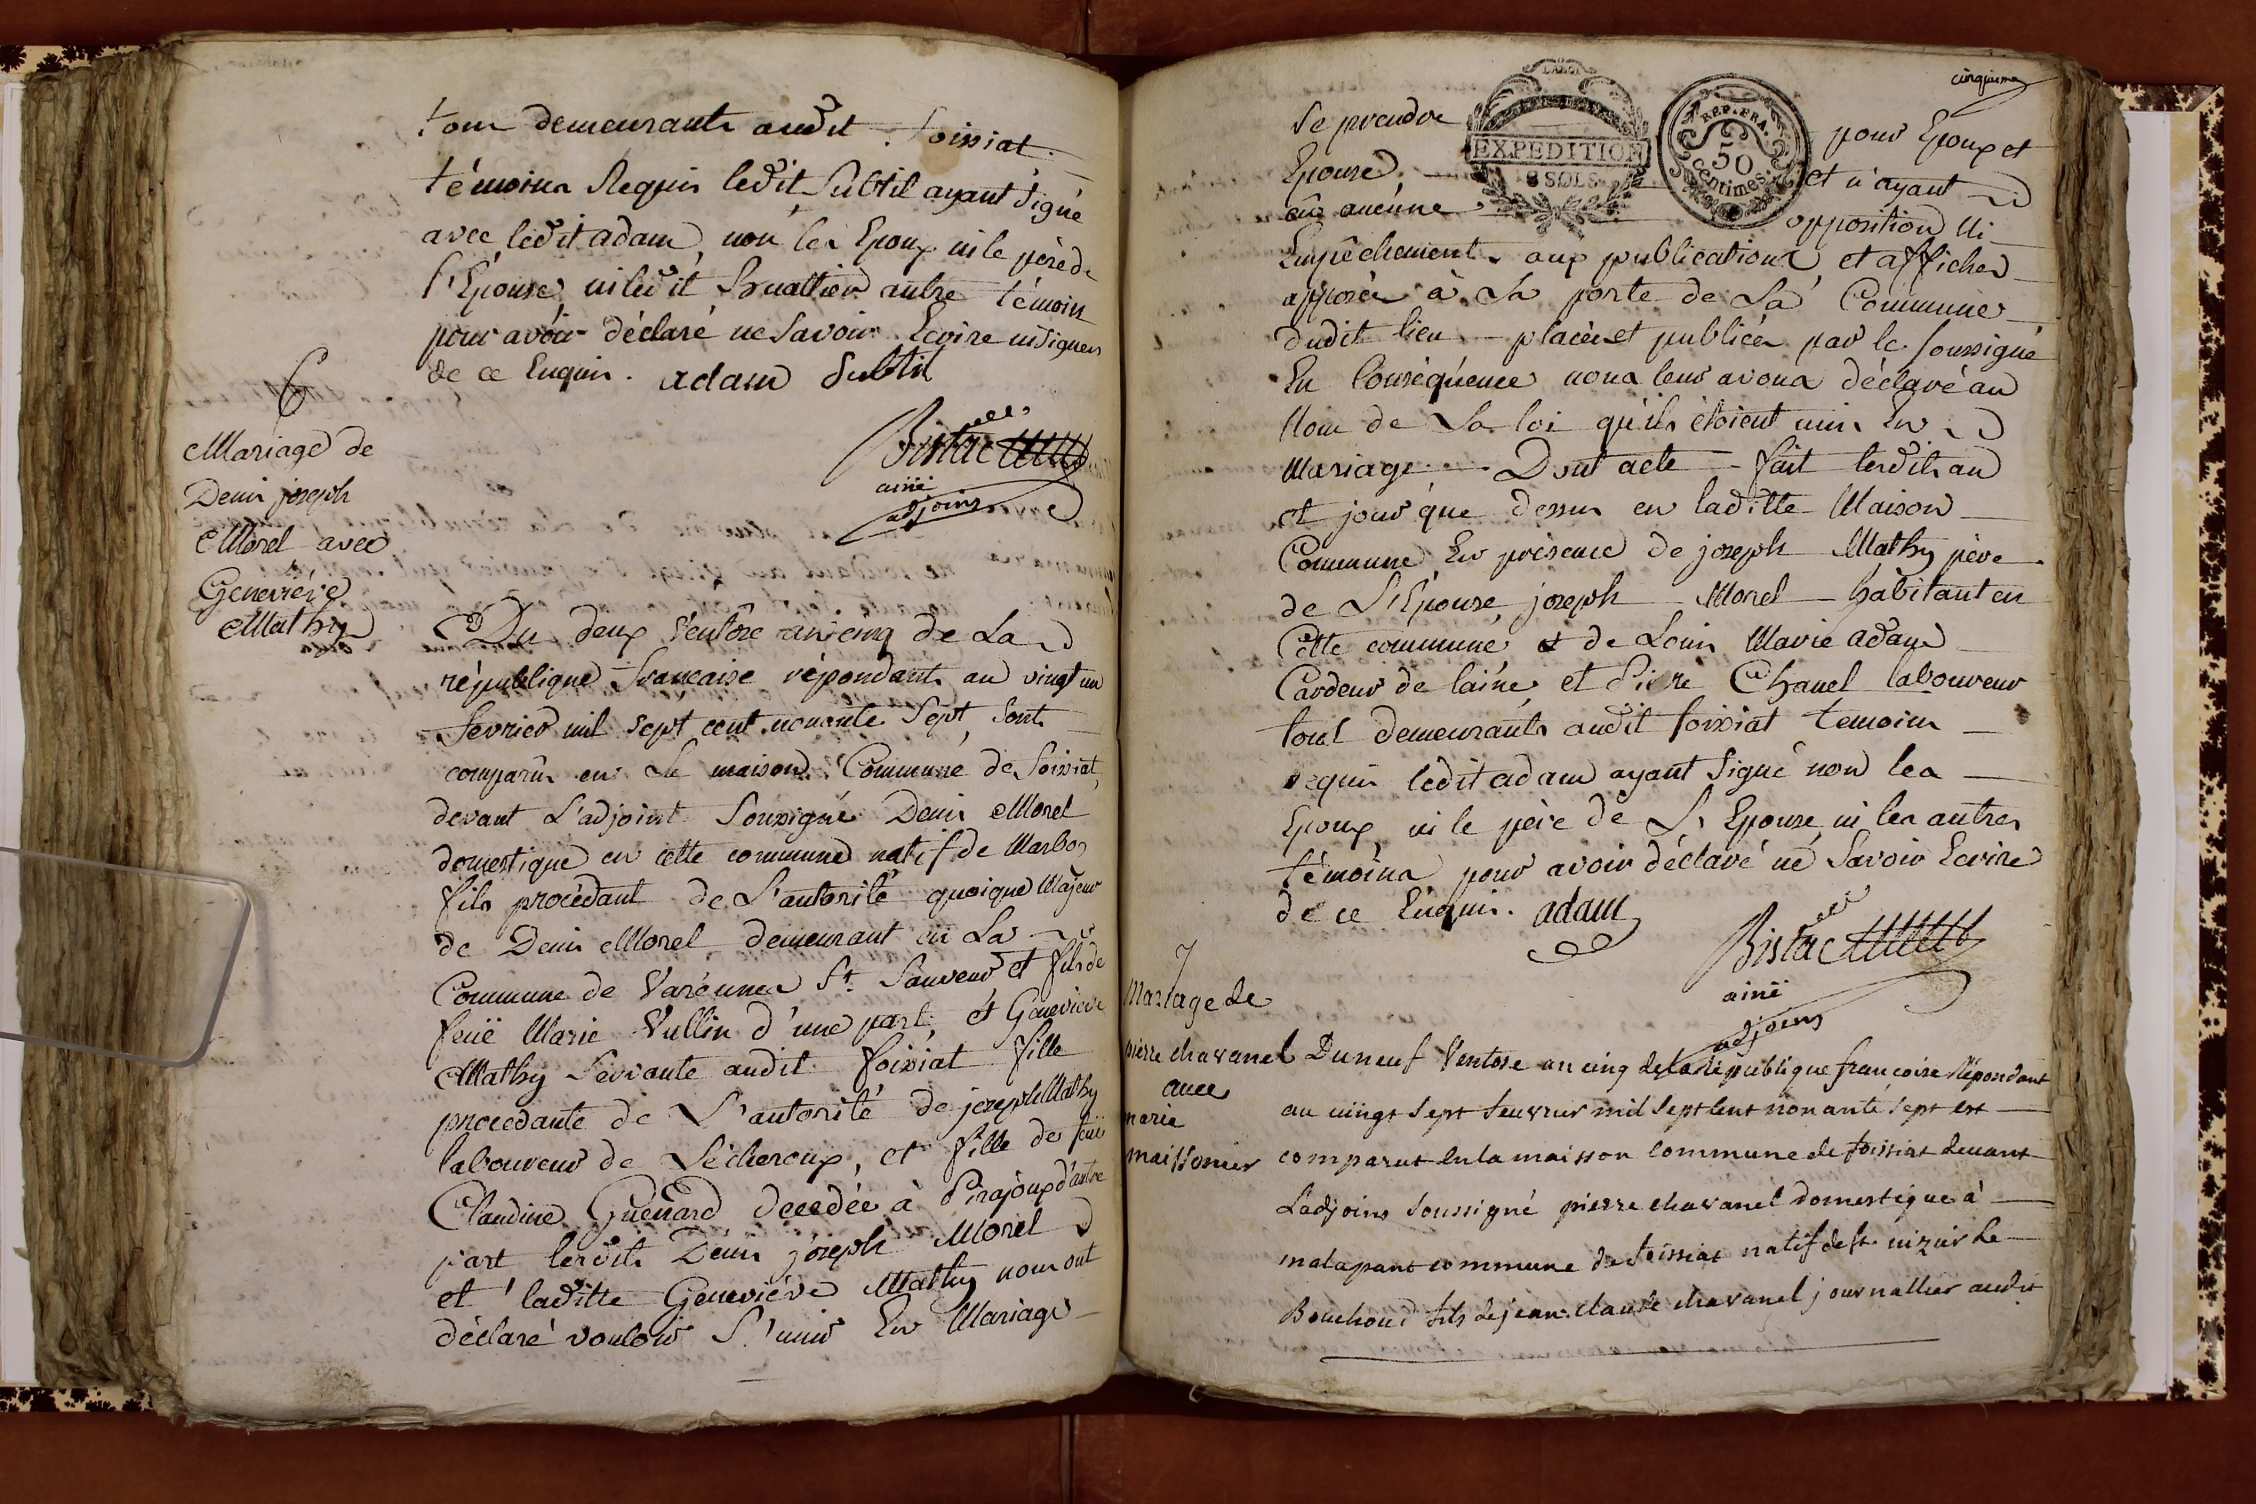 tous demeurants audit foissiat
témoins Requis ledit Subtil ayant signé
avec ledit adam, non les Epoux ni le père de
l'Epouse, ni ledit autre témoin
pour avoir déclaré ne savoir Ecrire ni signer
de ce Enquis. adam Subtil
ainé
adjoint
6
Mariage de
Denis joseph
Morel avec
Geneviéve
Mathy
Du deux Ventôse an cinq de La
république francaise répondant au vingt un
fevrier mil sept cent nonante sept, sont
comparûs en La maison Commune de foissiat,
devant L'adjoint soussigné Denis Morel
domestique en cette commune natif de Marboz
fils procédant de L'autorité quoique Majeur
de Denis Morel demeurant en La
Commune de Varénnes St. Sauveur et fils de
feüe Marie Vullin d'une part; et Genevieve
Mathy servante audit foissiat fille
procedante de L'autorité de joseph Mathy
laboureur de Lécheroux, et fille de feüe
Claudine Guénard decedée à Pirajoux d'autre
part lesdits Denis joseph Morel
et laditte Geneviéve Mathy nous ont
déclaré vouloir s'unir En Mariage
cinquieme
se prendre pour Epoux et
Epouse, et n'ayant
eû aucunne opposition Ni
Empêchements aux publications et affiches
apposées à La porte de La Commune
dudit lieu placées et publiées par le soussigné
En Conséquence nous leur avons déclaré au
Nom de La loi qu'ils étoient unis En
Mariage. Dont acte fait lesdits an
et jour que dessus en laditte Maison
Commune En présence de joseph Mathy père
de L'Epouse joseph Morel habitant en
Cette commune & de Louis Marie adam
Cardeur de laine, et Pierre Chanel laboureur
tous demeurants audit foissiat temoins
requis ledit adam ayant signé non les
Epoux, ni le père de L'Epouse, ni les autres
témoins pour avoir déclaré ne savoir Ecrire
de ce Enquis. adam
ainé
adjoint
EXPEDITION
8 SOLS
REP. FRA.
50
Centimes
7
Mariage de
pierre chavanel
avec
marie
maissonier
Du neuf Ventose an cinq de la république françoise Répondant
au vingt sept feuvrier mil sept cent nonante sept est
comparut en la maisson commune de foissiat devant
Ladjoins soussigné pierre chavanel domestique à
malapant commune de foissiat natif de st. nizier le
Bouchoud fils de jean-claude chavanel journallier audit